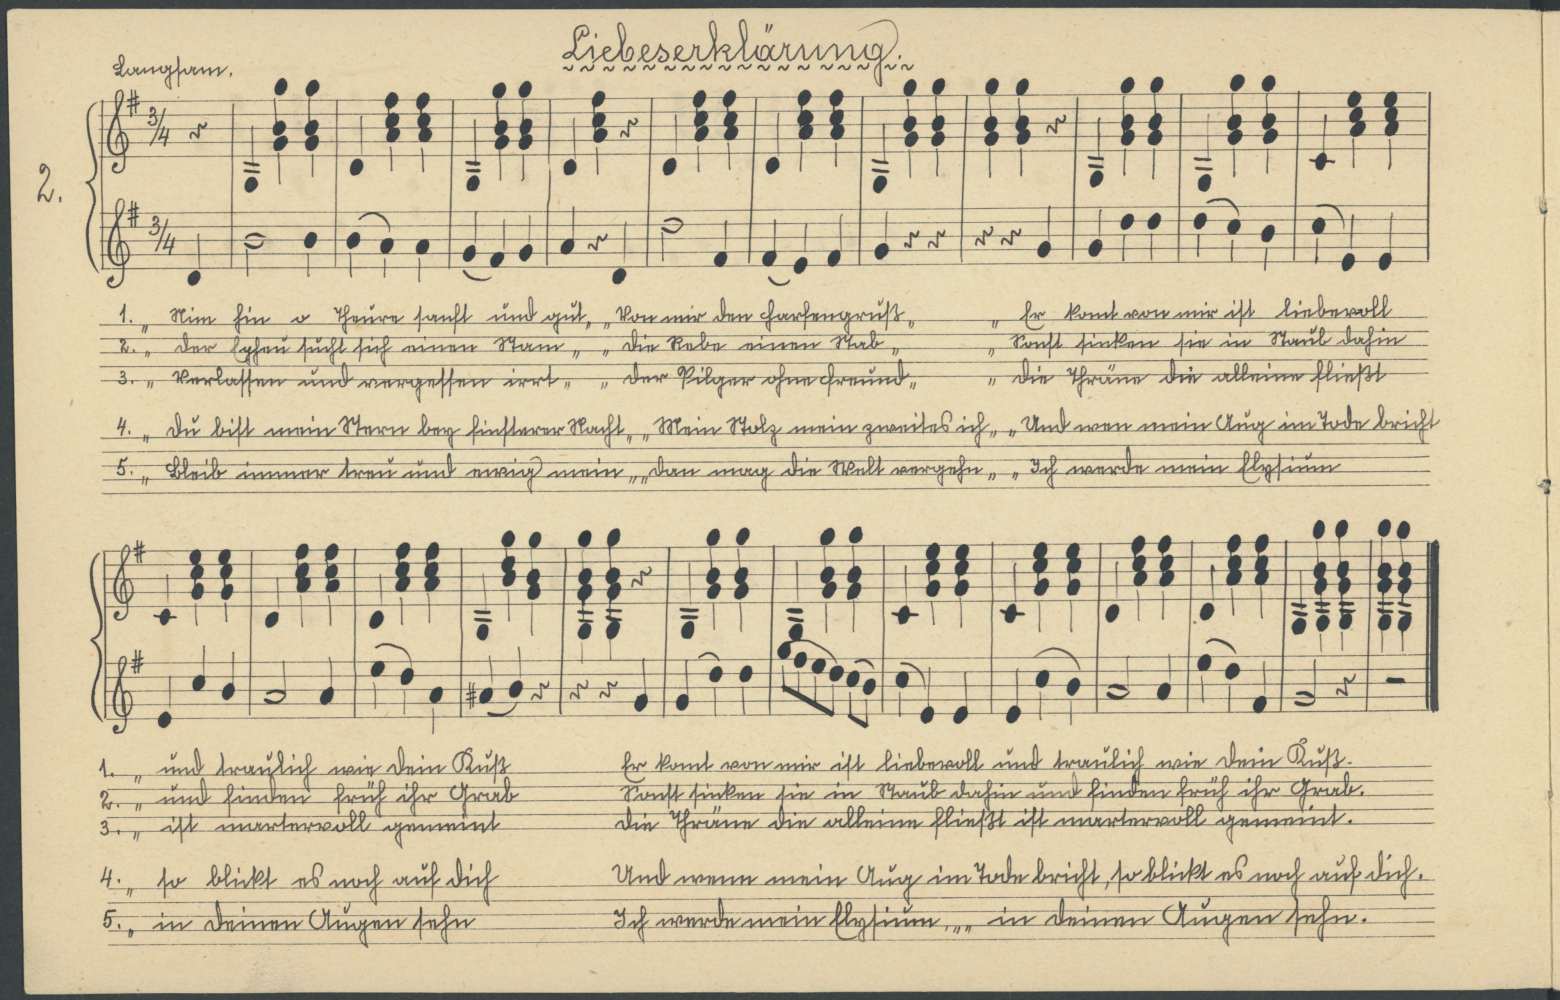 Liebeserklärung.
Langsam.
2.
3/4
3/4
1. „ Nim hin o Theure sanft und gut, „ Von mir den Harfengruß „ „ Er komt von mir ist liebevoll
2. „ der Epheu sucht sich einen Stam „ „ die Rebe einen Stab „ „ Sonst sinken sie in Staub dahin
3. „ Verlassen und vergessen irrt „ „ der Pilger ohne Freund „ „ die Thräne die alleine fließt
4. „ du bist mein Stern bey finsterer Nacht „ „ Mein Stolz mein zweites ich „ „ Und wen mein Aug im Tode bricht
5. „ bleib immer treu und ewig mein „ „ dan mag die Welt vergehn „ „ Ich werde mein Elysium
1. „ und traulich wie dein Kuß Er komt von mir ist liebevoll und traulich wie dein Kuß.
2. „ und finden früh ihr Grab Sonst sinken sie in Staub dahin und finden früh ihr Grab.
3. „ ist martervoll gemeint die Thräne die alleine fließt ist martervoll gemeint.
4. „ so blickt es noch auf dich Und wenn mein Aug im Tode bricht, so blickt es noch auf dich.
5. „ in deinen Augen sehn Ich werde mein Elysium, „ „ in deinen Augen sehn.